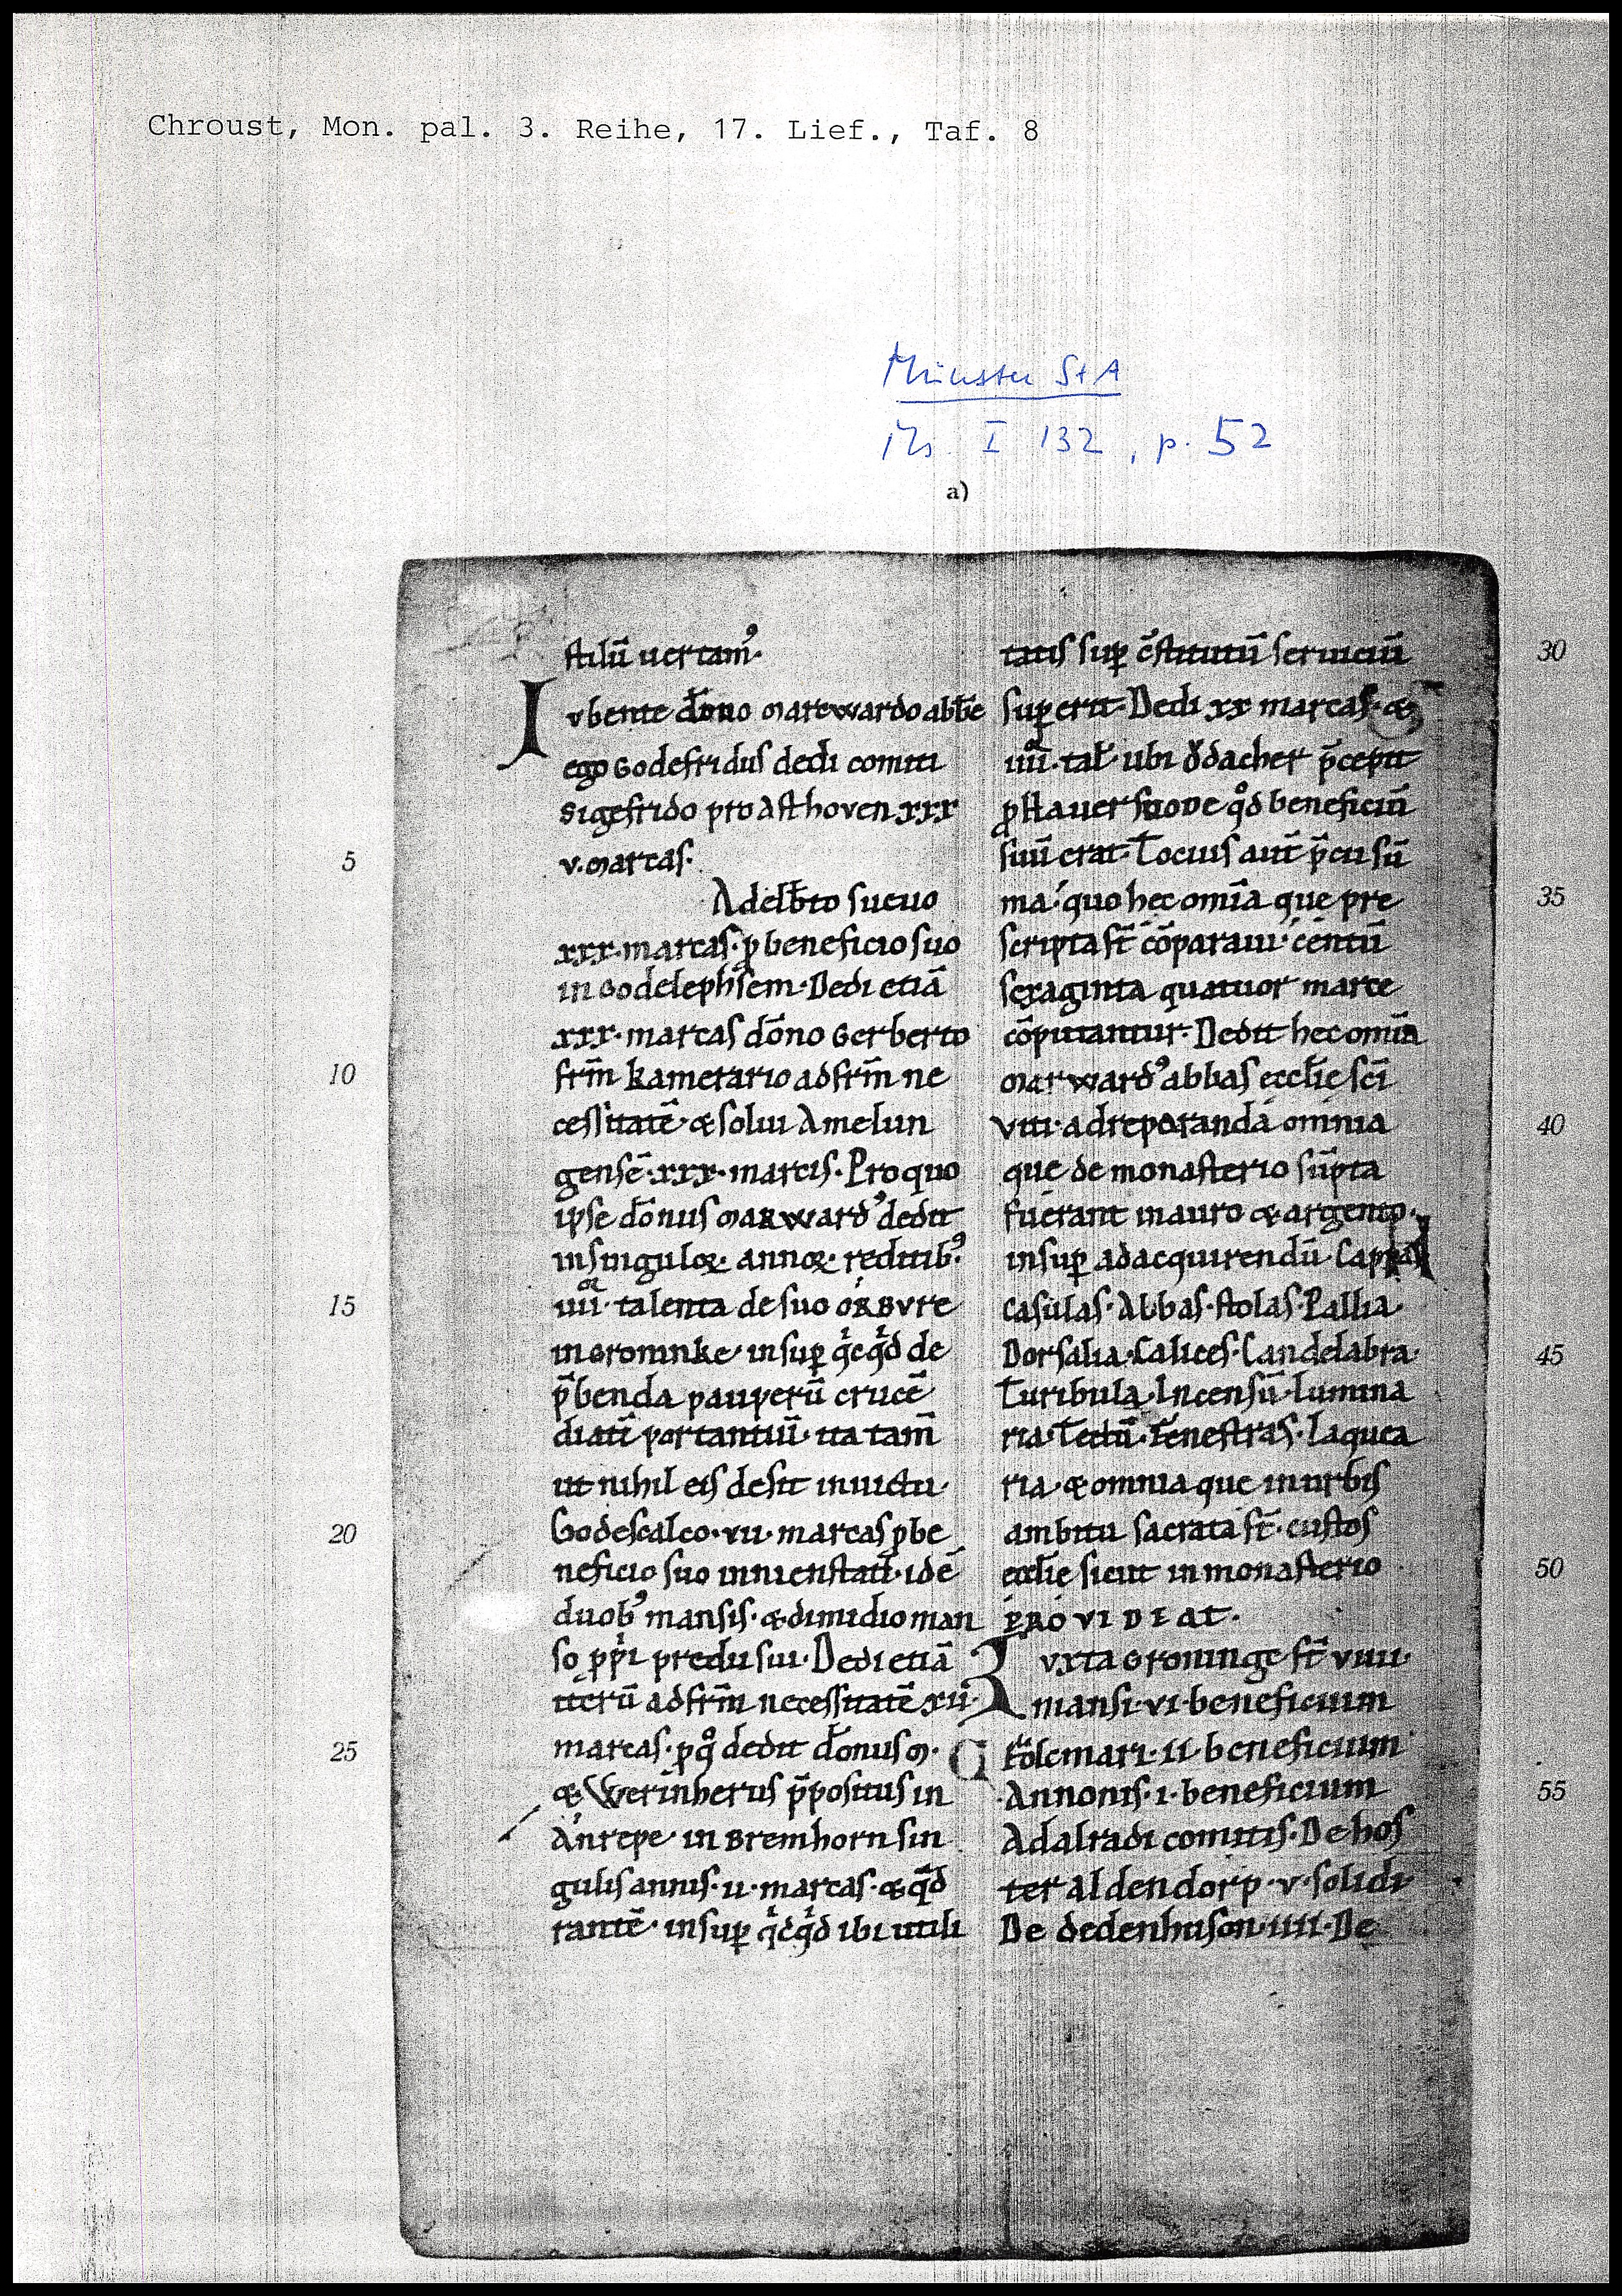 Chroust, Mon. pal. 3. Reihe, 17. Lief., Taf. 8
Münster StA
Ms I 132, p. 52
a)
stilū uertam᷒·
Iubente dōno Marcwardo abb̄e
ego Godefridus dedi comiti
Sigefrido pro Asthoven xxx
5
v. Marcas.
Adelb̄to sueuo
xxx·marcas·ꝓ beneficio suo
in Godelephs̄em·Dedi etiā
xxx·marcas dōno Gerberto
10
fr̄m kamerario ad fr̄m ne
cessitatē·& solui Amelun
gensē·xxx·marcis·Pro quo
ipse dōnus Marward᷒ dedit
in singuloꝝ·annoꝝ·reditib᷒·
15
iiii·talenta de suo ORBVRE
in Groninke·insuꝑ qͥcqͥd de
p̄benda pauperū crucē
diatī portantiū·ita tam̄
ut nihil eis desit in uictu·
20
Godescalco·vii·marcas ꝓ be
neficio suo in nienstad·idē
duob᷒ mansis·& dimidio man
so ꝓpͥi predii sui·Dedi etiā
iterū ad fr̄m necessitatē xii·
25
marcas·ꝓ qͦ dedit dōnus M·
& Werinherus p̄positus in
Anrepe·in Bremhorn sin
gulis annis·ii·marcas·& qͣd
rantē·insuꝑ qͥcqͥd ibi utili
30
tatis suꝑ c̄stitutū seruiciū
suꝑerit·Dedi xx marcas·&
iiii·tal̄·ubi Odacher p̄cepit
ꝓ stauersuove qͦd beneficiū
suū erat·Totius aut̄ p̄cii sū
35
ma·quo hec om̄ia que pre
scripta st̄ cōparaui·centū
sexaginta quatuor marce
cōputantur·Dedit hec om̄ia
Marward᷒ abbas eccl̄ie sc̄i
40
Viti·ad reparanda omnia
que de monasterio sūpta
fuerant in auro & argento·
insuꝑ ad acquirendū·Cappas
Casulas·Albas·stolas·Pallia·
45
Dorsalia·Calices·Candelabra·
Turibula·Incensū·lumina
ria·Tectū·Fenestras·Laquea
ria·& omnia que in urbis
ambitu sacrata st̄·custos
50
eccl̄ie sicut in monasterio
PROVIDEAT·
Iuxta Groninge st̄ viiii·
mansi·vi·beneficium
Folcmari·ii·beneficium
55
Annonis·i·beneficium
Adalradi comitis·De hos
ter aldendorp·v·solidi·
De dedenhuson·iiii·De